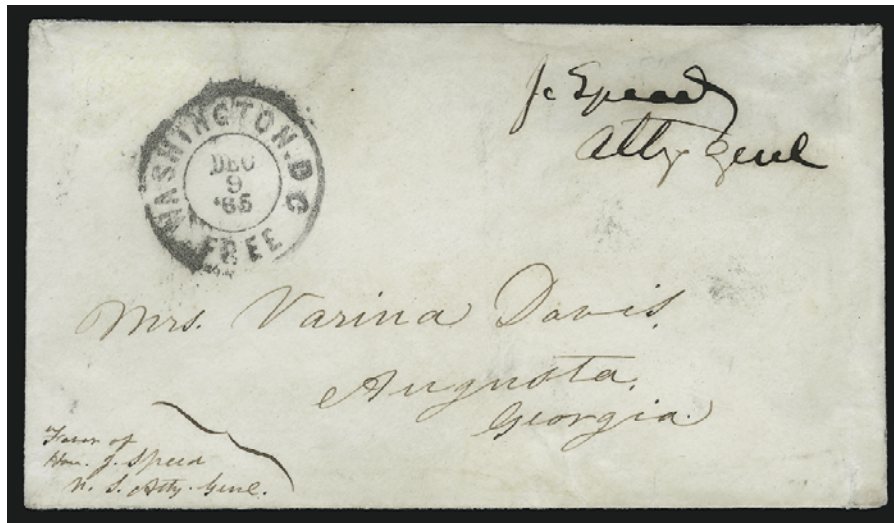 WASHINGTON. D C
DEC
9
'65
FREE
Js Speed
Atty Genl
Mrs. Varina Davis.
Augusta.
Georgia.
Favor of
Hon. J. Speed
U. S. Atty. Genl.